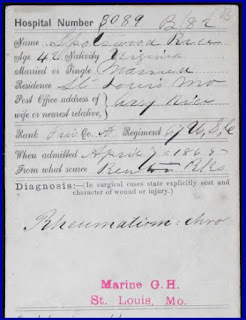 Hospital Number 3089
Name Spotswood Rice
Age 42 Nativity Virginia
Married or Single Married
Residence St Louis Mo
Post Office address of wife or nearest relative, Rice
Rank Co. A Regiment 67 U.S.C
When admitted April 186
From what source Benton Bks
Diagnosis:—(In surgical cases state explicitly seat and
character of wound or injury.)
Rheumatism: chro
Marine G. H.
St. Louis, Mo.